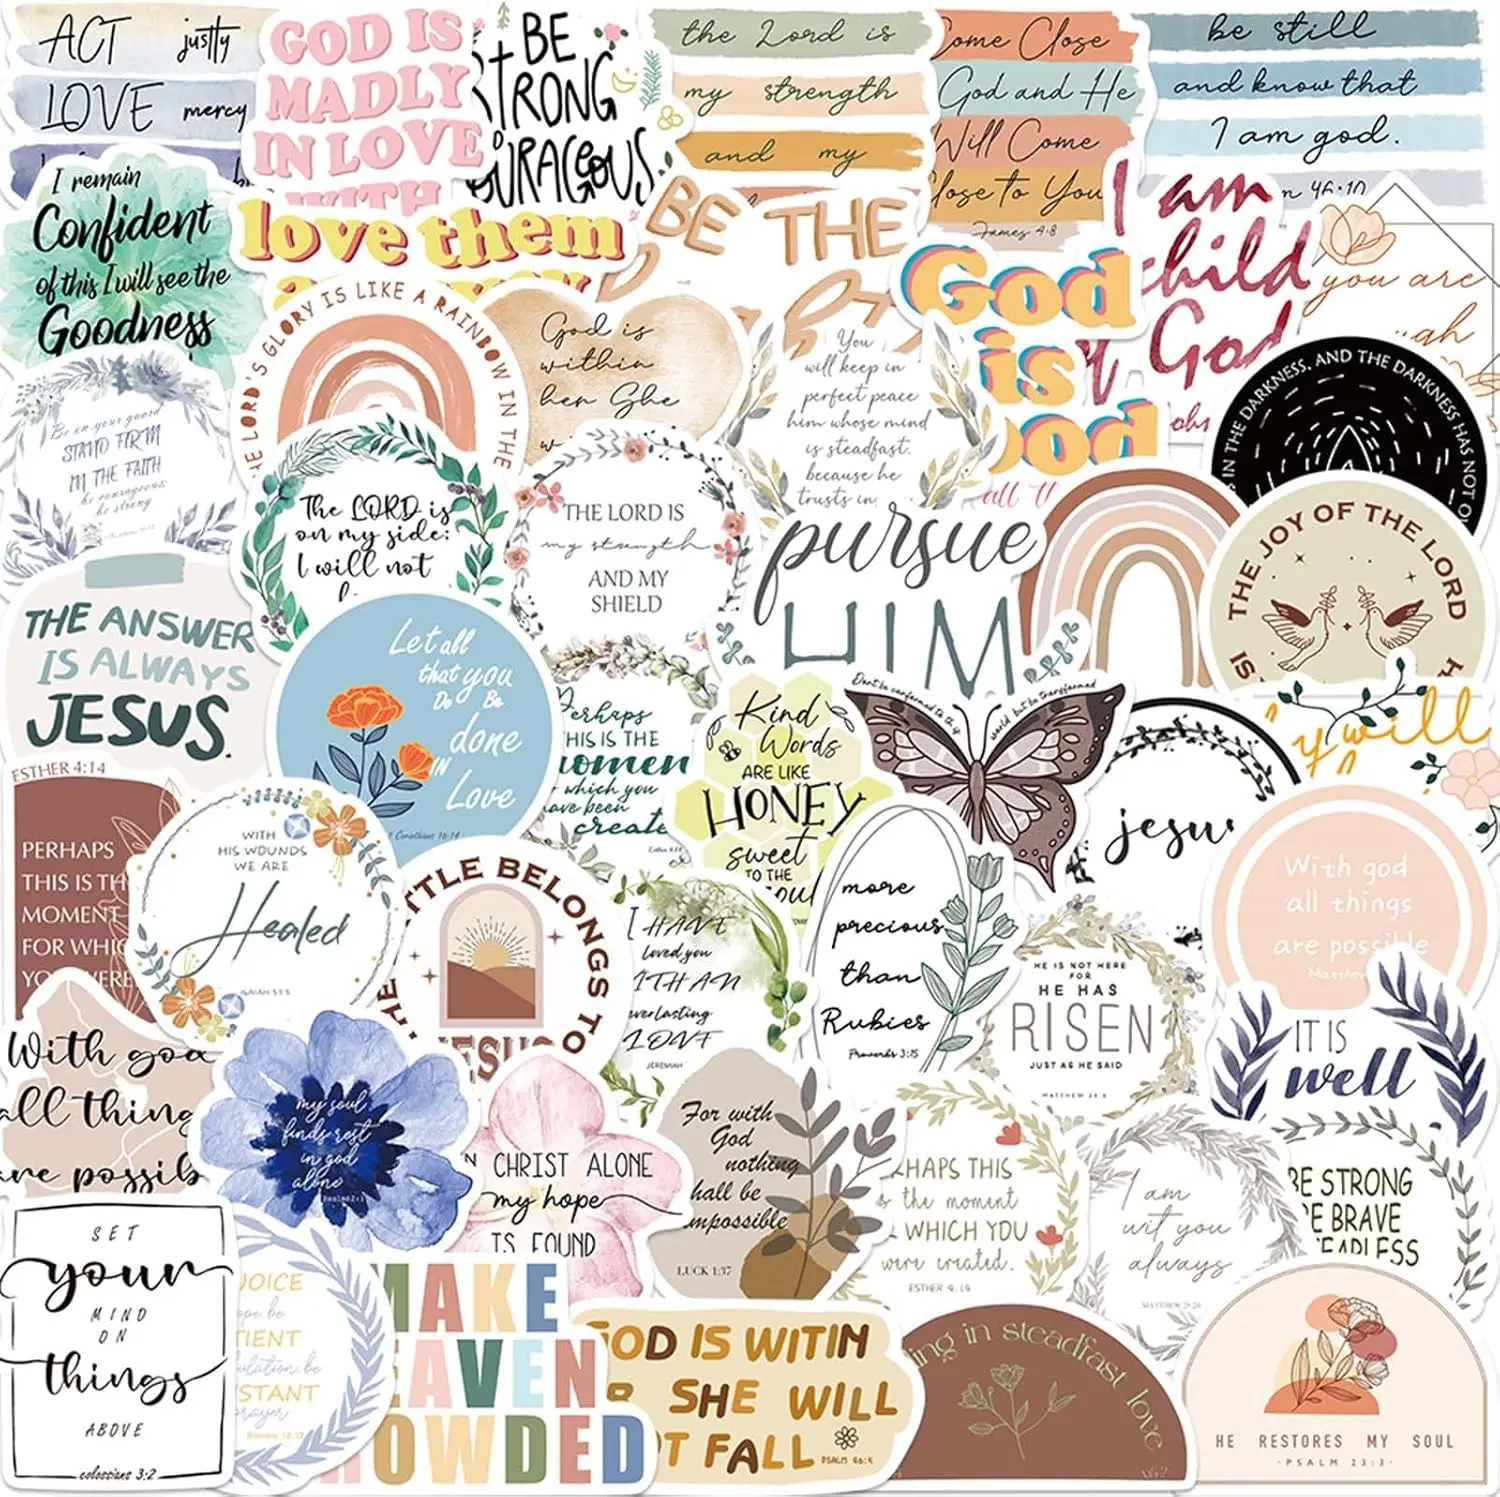 ACT justly
LOVE mercy
GOD IS
MADLY
IN LOVE
WITH
BE
STRONG
COURAGEOUS
the Lord is
my strength
and my
Come Close
God and He
Will Come
Close to You
James 4:8
be still
and know that
I am god.
I remain
Confident
of this I will see the
Goodness
love them
BE THE
God
is
good
all th
I am
child
God
you are
THE LORD'S GLORY IS LIKE A RAINBOW IN THE
God is
within
her She
You
will keep in
perfect peace
him whose mind
is steadfast.
because he
trusts in
IN THE DARKNESS, AND THE DARKNESS HAS NOT
Be on your guard
STAND FIRM
IN THE FAITH
be courageous
be strong
The LORD is
on my side:
I will not
THE LORD IS
my strength
AND MY
SHIELD
pursue
HIM
THE JOY OF THE LORD
IS
THE ANSWER
IS ALWAYS
JESUS.
Let all
that you
Do Be
done
IN
Love
1 Corinthians 16:14
Perhaps
THIS IS THE
women
which you
have been
create
Kind
Words
ARE LIKE
HONEY
sweet
TO THE
soul
Don't be conformed to this world but be transformed
jesus
will
ESTHER 4:14
PERHAPS
THIS IS TH
MOMENT
FOR WHIC
YOU WERE
WITH
HIS WOUNDS
WE ARE
Healed
ISAIAH 53:5
TTLE BELONGS TO
JESUS
I HAVE
loved you
WITH AN
everlasting
LOVE
JEREMIAH
more
precious
than
Rubies
Proverbs 3:15
HE IS NOT HERE
FOR
HE HAS
RISEN
JUST AS HE SAID
MATTHEW 28:6
With god
all things
are possible
Matthew
IT IS
well
With god
all thing
are possib
my soul
finds rest
in god
alone
Psalm 62:1
IN CHRIST ALONE
my hope
IS FOUND
For with
God
nothing
shall be
impossible
LUCK 1:37
RHAPS THIS
is the moment
WHICH YOU
were created.
ESTHER 4:14
I am
wit you
always
MATTHEW 28:20
BE STRONG
BE BRAVE
FEARLESS
SET
your
MIND
ON
things
ABOVE
colossians 3:2
JOICE
ope be
TIENT
ulation, be
STANT
prayer
Romans 12:12
MAKE
EAVEN
ROWDED
GOD IS WITIN
R SHE WILL
T FALL
PSALM 46:5
ing in steadfast love
HE RESTORES MY SOUL
·PSALM 23:3·